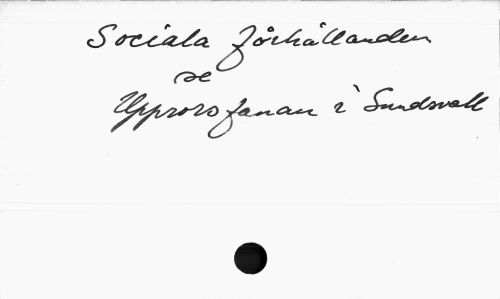 Sociala förhållanden
se
Upprorsfanan i Sundsvall